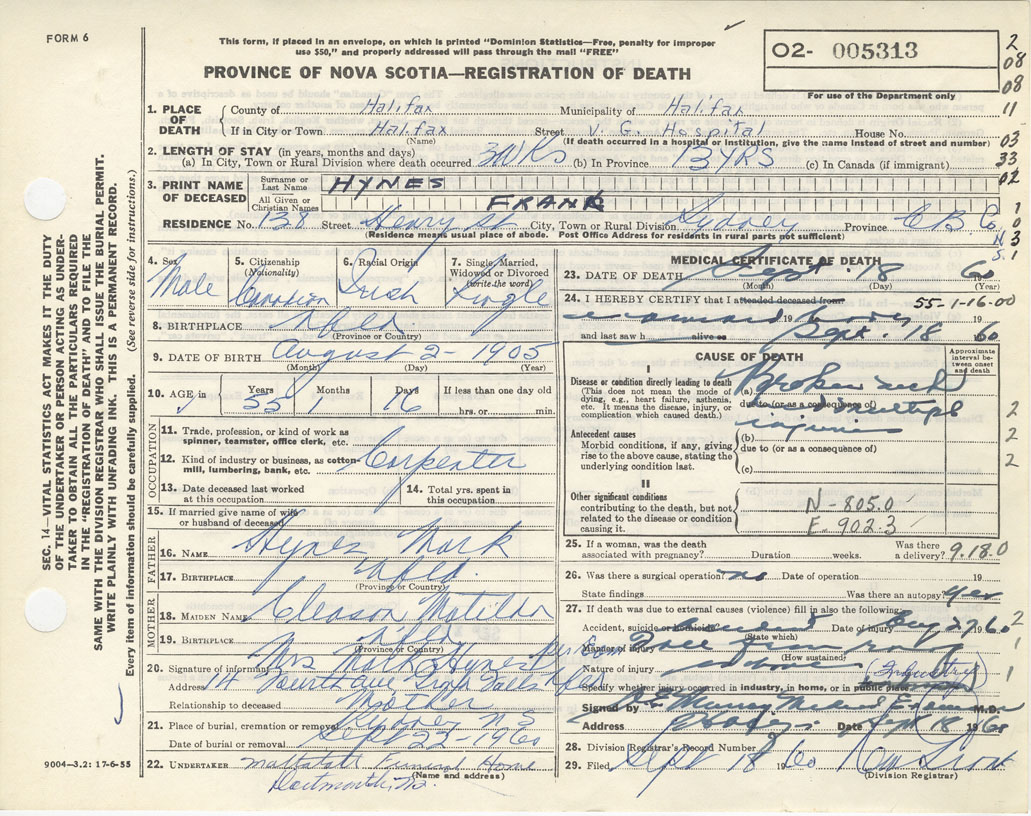 FORM 6
This form, if placed in an envelope, on which is printed "Dominion Statistics—Free, penalty for improper
use $50," and properly addressed will pass through the mail "FREE"
O2- 005313
PROVINCE OF NOVA SCOTIA—REGISTRATION OF DEATH
For use of the Department only
2
08
08
11
03
33
02
1
0
N 3
S. 1
1. PLACE OF DEATH County of Halifax Municipality of Halifax
If in City or Town Halifax Street V. G. Hospital House No.
(Name) (If death occurred in a hospital or institution, give the name instead of street and number)
2. LENGTH OF STAY (in years, months and days)
(a) In City, Town or Rural Division where death occurred 3 WKS (b) In Province 13 YRS (c) In Canada (if immigrant)
3. PRINT NAME OF DECEASED Surname or Last Name HYNES
All Given or Christian Names FRANK
RESIDENCE No. 138 Street Henry St City, Town or Rural Division Sydney Province C B Co
(Residence means usual place of abode. Post Office Address for residents in rural parts not sufficient)
4. Sex Male
5. Citizenship (Nationality) Canadian
6. Racial Origin Irish
7. Single, Married, Widowed or Divorced (write the word) Single
8. BIRTHPLACE Nfld.
(Province or Country)
9. DATE OF BIRTH August 2 - 1905
(Month) (Day) (Year)
10. AGE in Years 55 Months 1 Days 16 If less than one day old
hrs. or min.
OCCUPATION
11. Trade, profession, or kind of work as
spinner, teamster, office clerk, etc.
12. Kind of industry or business, as cotton-
mill, lumbering, bank, etc. Carpenter
13. Date deceased last worked
at this occupation
14. Total yrs. spent in
this occupation
15. If married give name of wife
or husband of deceased
FATHER
16. NAME Hynes Mark
17. BIRTHPLACE Nfld.
(Province or Country)
MOTHER
18. MAIDEN NAME Gleason Matilda
19. BIRTHPLACE Nfld
(Province or Country)
20. Signature of informant Mrs Mark Hynes
Address 14 Fourth ave Falls Nfld
Relationship to deceased Mother
21. Place of burial, cremation or removal Sydney N S
Date of burial or removal Sept 22 - 1960
22. UNDERTAKER Mattatall Funeral Home
(Name and address)
Dartmouth, N.S.
MEDICAL CERTIFICATE OF DEATH
23. DATE OF DEATH Sept. 18 60
(Month) (Day) (Year)
24. I HEREBY CERTIFY that I attended deceased from:
55-1-16-00
19 19
and last saw h alive on Sept. 18 60
CAUSE OF DEATH
Approximate
interval be-
tween onset
and death
I
Disease or condition directly leading to death
(This does not mean the mode of
dying, e.g., heart failure, asthenia,
etc. It means the disease, injury, or
complication which caused death.)
(a) Broken neck
due to (or as a consequence of)
multiple 2
injuries
Antecedent causes
Morbid conditions, if any, giving
rise to the above cause, stating the
underlying condition last.
(b) 2
due to (or as a consequence of)
2
(c)
II
Other significant conditions
contributing to the death, but not
related to the disease or condition
causing it.
N-805.0
E-902.3
25. If a woman, was the death
associated with pregnancy? Duration weeks. Was there
a delivery? 9.18.0
26. Was there a surgical operation? no Date of operation 19
State findings Was there an autopsy? yes
27. If death was due to external causes (violence) fill in also the following:
Accident, suicide or homicide? Accident Date of injury Aug 27 1960 2
(State which)
Manner of injury Fall from roof 1
(How sustained)
Nature of injury as above (Industry) 1
Specify whether injury occurred in industry, in home, or in public place
Signed by Murray Medical Examiner M.D.
Address Halifax Date Sept 18 1960
28. Division Registrar's Record Number
29. Filed Sept 18 1960
(Division Registrar)
SEC. 14—VITAL STATISTICS ACT MAKES IT THE DUTY
OF THE UNDERTAKER OR PERSON ACTING AS UNDER-
TAKER TO OBTAIN ALL THE PARTICULARS REQUIRED
IN THE "REGISTRATION OF DEATH" AND TO FILE THE
SAME WITH THE DIVISION REGISTRAR WHO SHALL ISSUE THE BURIAL PERMIT.
WRITE PLAINLY WITH UNFADING INK. THIS IS A PERMANENT RECORD.
Every item of information should be carefully supplied. (See reverse side for instructions.)
9004—3.2: 17-6-55